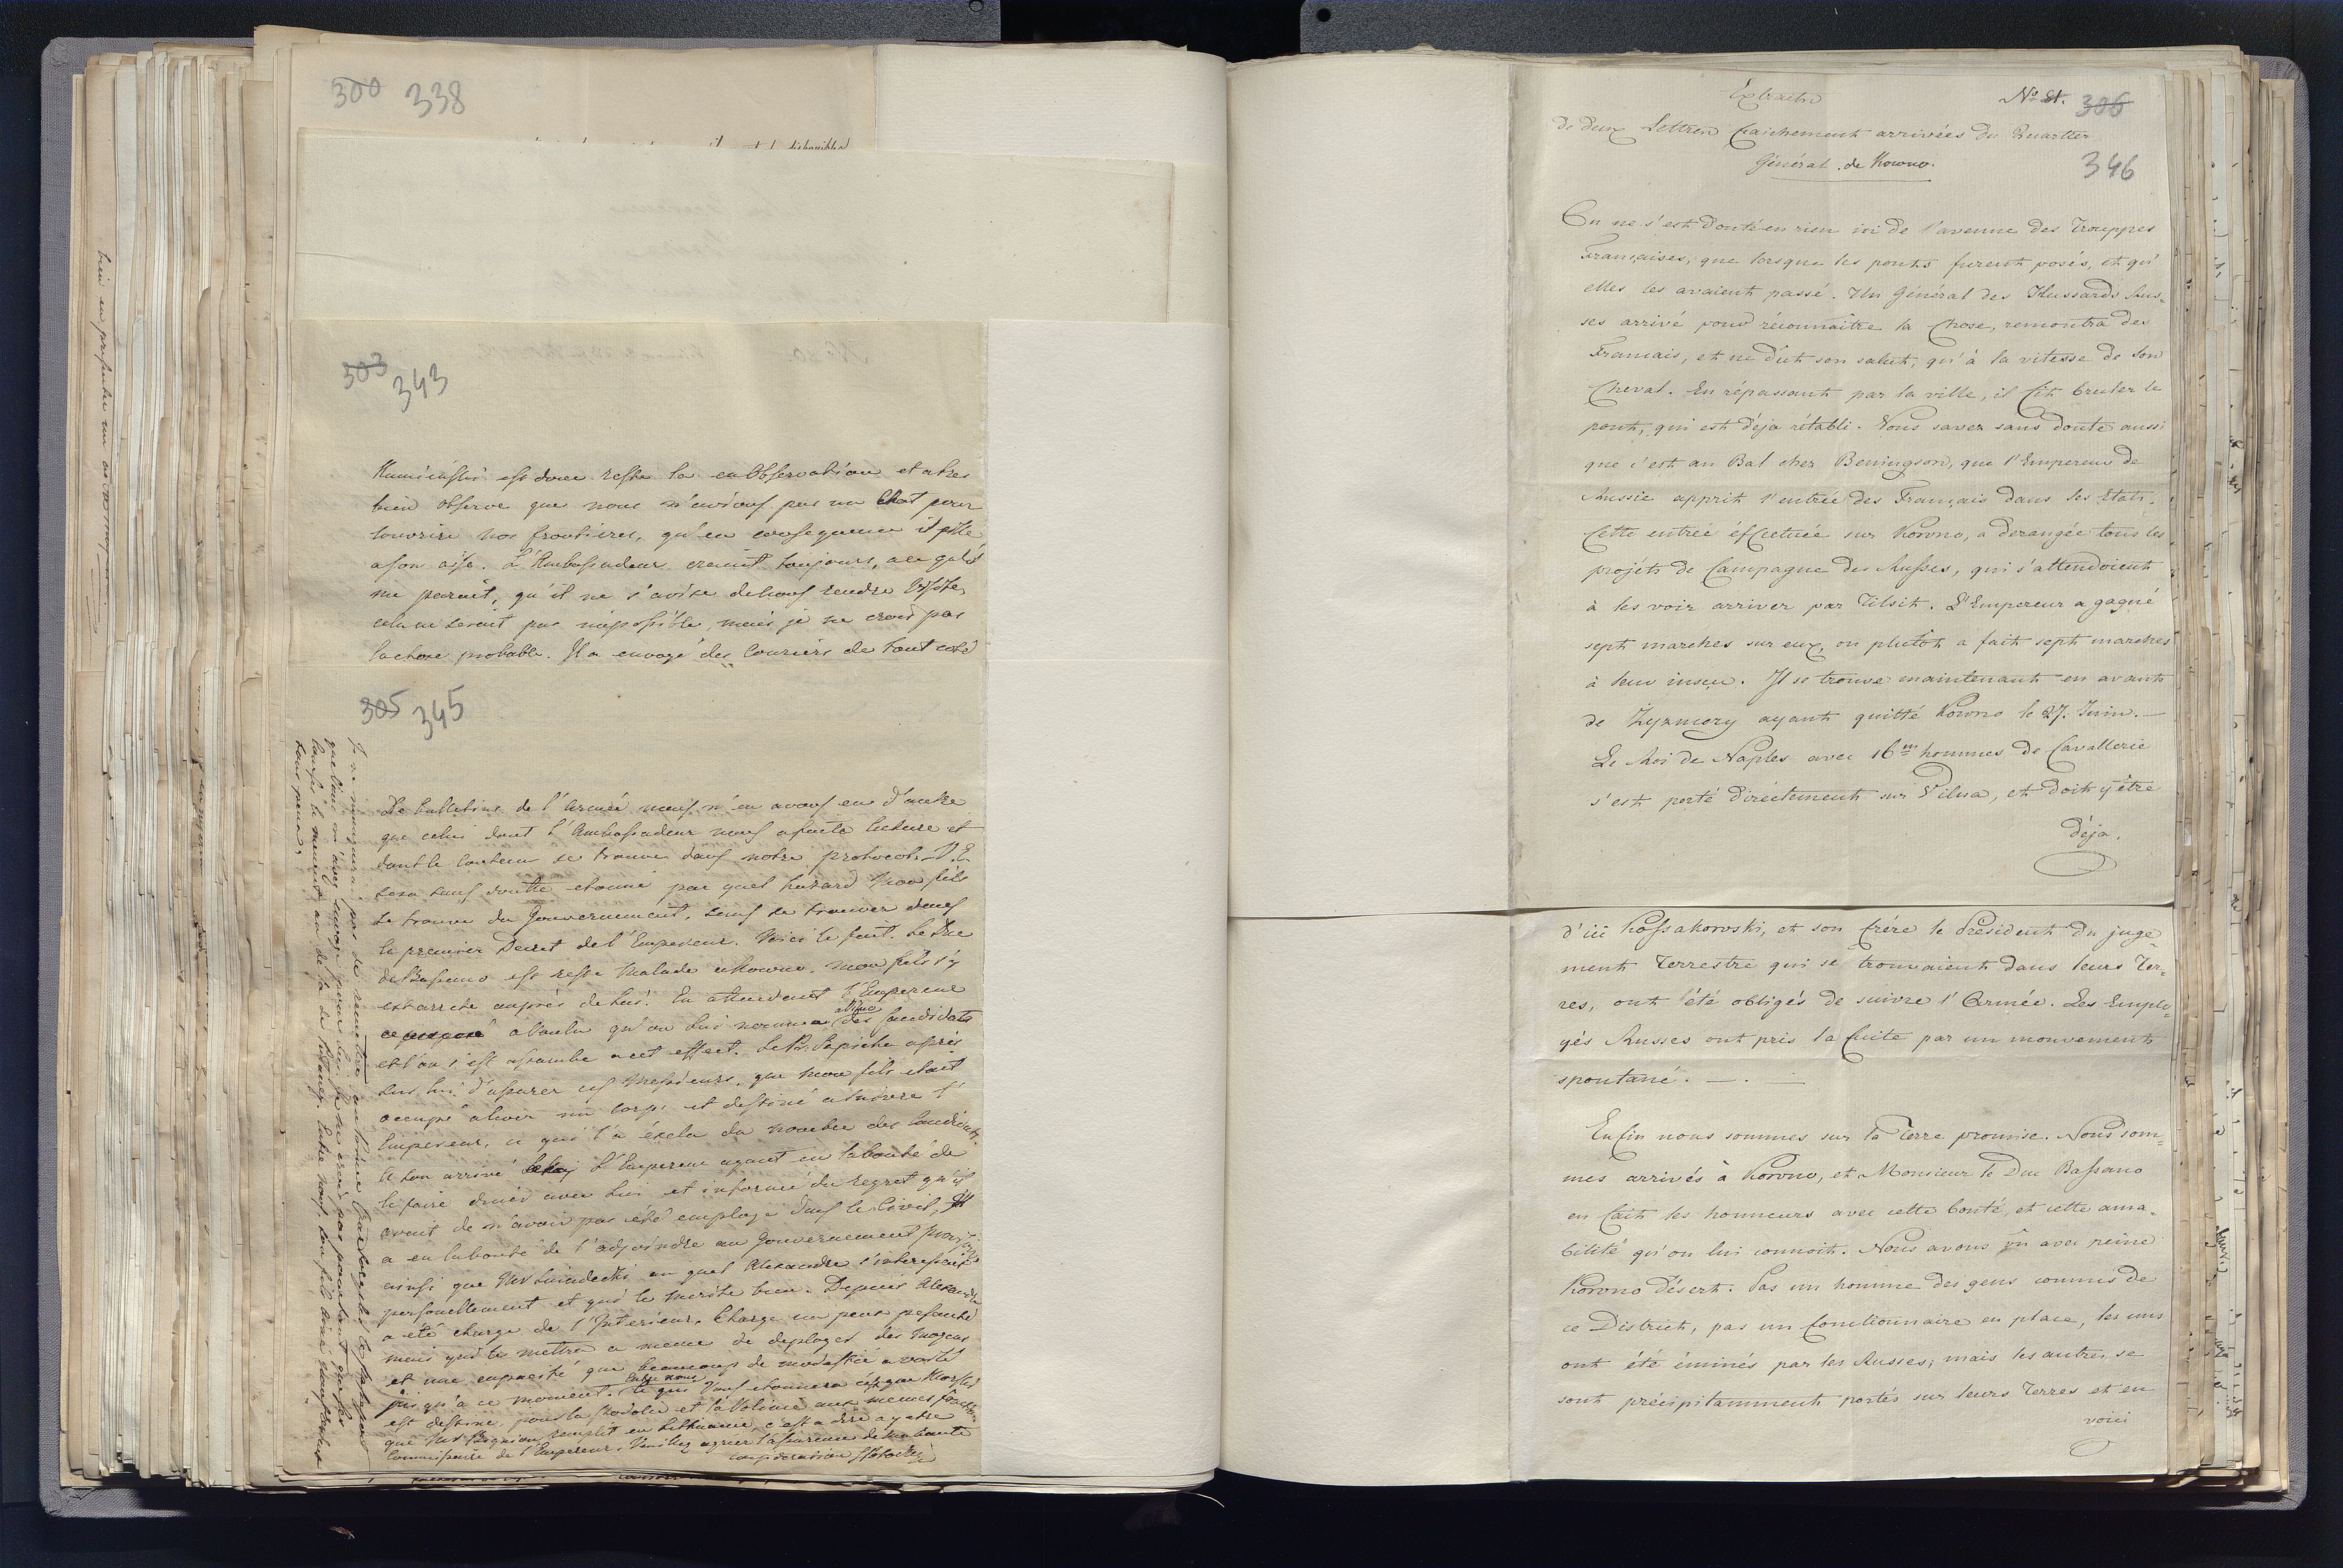 300 338
303 343
est donc resté là en Observation et a très
bien observé que nous n'avions pas un Chat pour
couvrir nos frontières, qu'en consequence il pille
a son aise. L'Ambassadeur craint toujours, a ce qu'il
me parait, qu'il ne s'avise de nous rendre visite,
cela ne serait pas impossible, mais je ne crois pas
la chose probable. Il a envoyé des Couriers de tout coté
305 345
De bulletins de l'armée nous n'en avons eu d'autre
que celui dont l'Ambassadeur nous a faite lecture et
dont le contenu se trouve dans notre protocole. V. E.
sera sans doutte etonné par quel hazard mon fils
se trouve du Gouvernement, sans se trouver dans
le premier Decret de l'Empereur. Voici le fait. Le Duc
de Bassano est resté malade a Kowno, mon fils s'y
est arreté auprès de lui. En attendant l'Empereur
a voulu qu'on lui nomma des Candidats
et l'on s'est assemblé a cet effect. Le Pr. Sapieha a pris
sur lui d'assurer ces Messieurs, que mon fils etait
occupé a lever un corps et destiné a suivre l'
Empereur, ce qui l'a exclu du nombre des Candidats.
A son arrivé l'Empereur ayant eu la bonté de
le faire diner avec lui et informé du regret qu'il
avait de n'avoir pas été employé dans le Civil, Il
a eu la bonté de l'adjoindre au Gouvernement
ainsi que Mr Sniadecki au quel Alexandre s'interessait
personellement et qui le merite bien. Depuis Alexandre
a été chargé de l'Interieur. Charge un peu pesante
mais qui le mettra a meme de deployer des moyens
et une capacité que beaucoup de modestie a voilé
jusqu'à ce moment. Entre nous Ce qui Vous etonnera c'est que
est destiné pour la Podolie et la Volinie aux memes fonctions
que Mr Bignion remplit en Lithuanie, c'est a dire a y etre
Commissaire de l'Empereur. Veuillez agréer l'assurance de ma haute
consideration
Extraits
No 81. 306
de deux Lettres fraichement arrivées du Quartier
Général de Kowno.
346
On ne s'est douté en rien ici de l'avenue des Trouppes
Françaises, que lorsque les ponts furent posés, et qu'
elles les avaient passé. Un Général des Hussards Rus-
ses arrivé pour réconnaitre la Chose, remontra des
Français, et ne dût son salut, qu'à la vitesse de son
Cheval. En répassant par la ville, il fit bruler le
pont, qui est déja rétabli. Vous savez sans doute aussi
que c'est au Bal chez Beningson, que l'Empereur de
Russie apprit l'entrée des Français dans ses Etats.
Cette entrée éffectuée sur Kowno, a derangée tous les
projéts de Campagne des Russes, qui s'attendoient
à les voir arriver par Tilsit. L'Empereur a gagné
sept marches sur eux, ou plutôt a fait sept marches
à leur insçu. Il se trouve maintenant en avant
de Zyzmory ayant quitté Kowno le 27. Juin. —
Le Roi de Naples avec 16m hommes de Cavallerie
s'est porté directement sur Vilna, et doit y être
déja.
d'ici Kossakowski, et son frére le Président du juge-
ment Terrestre qui se trouvaient dans leurs Ter-
res, ont été obligés de suivre l'Armée. Les Emplo-
yés Russes ont pris la fuite par un mouvement
spontané. — . —
Enfin nous sommes sur la Terre promise. Nous som-
mes arrivés à Kowno, et Monsieur le Duc Bassano
en fait les honneurs avec cette bonté, et cette ama-
bilité qu'on lui connoit. Nous avons vû avec peine
Kowno désert. Pas un homme des gens commis de
ce District, pas un fonctionnaire en place, les uns
ont été éminés par les Russes; mais les autres se
sont précipitamment portés sur leurs Terres et en
voici